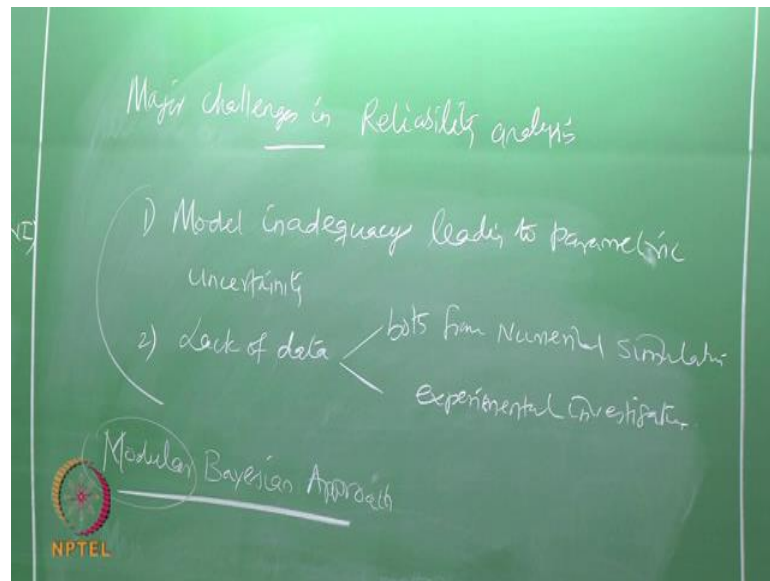 Major challenges in Reliability analysis
1) Model inadequacy leading to parametric
uncertainty
2) Lack of data
both from Numerical Simulation
experimental investigation
Modular Bayesian Approach
NPTEL